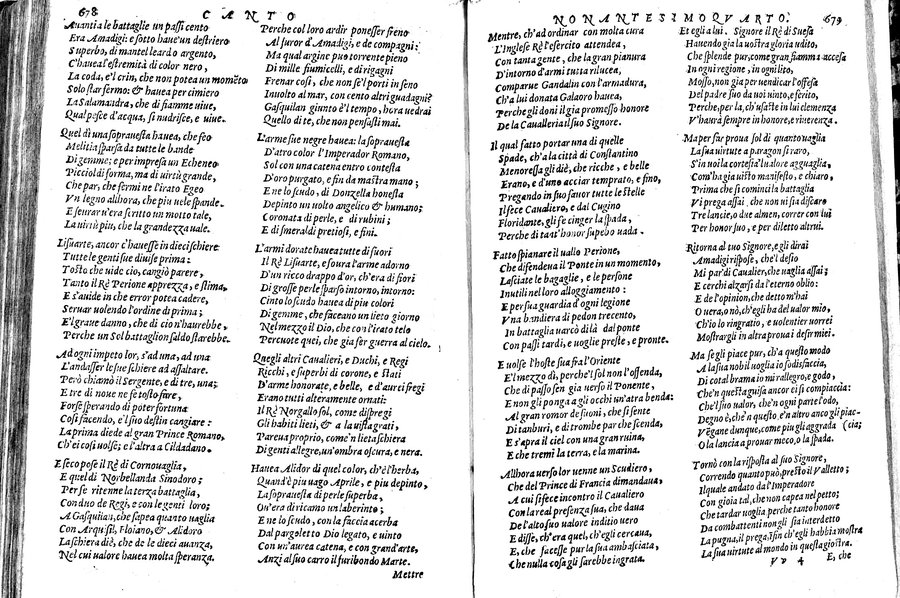 678
CANTO
Auantia le battaglie un passi cento
Era Amadigi: e sotto haue'un destriero
Superbo, di mantel leardo argento,
C'hauea l'estremità di color nero,
La coda, e'l crin, che non potea un momēto
Solo star fermo: & hauea per cimiero
La Salamandra, che di fiamme uiue,
Qual pesce d'acqua, si nudrisce, e uiue.
Quel dì una soprauesta hauea, che feo
Melitia sparsa da tutte le bande
Di gemme; e per impresa un Echeneo
Picciol di forma, ma di uirtù grande,
Che par, che fermi ne l'irato Egeo
Vn legno allhora, che piu uele spande.
E seura u'era scritto un motto tale,
La uirtù piu, che la grandezza uale.
Lisuarte, ancor c'hauesse in dieci schiere
Tutte le genti sue diuise prima:
Tosto che uide ciò, cangiò parere,
Tanto il Rè Perione apprezza, e stima,
E s'auide in che error potea cadere,
Seruar uolendo l'ordine di prima;
E'l graue danno, che di cio n'haurebbe,
Perche un Sol battaglion saldo starebbe.
Ad ogni impeto lor, s'ad una, ad una
L'andasser le sue schiere ad assaltare.
Però chiamò il Sergente, e di tre, una;
E tre di noue ne fe tosto fare,
Forse sperando di poter fortuna
Così facendo, e'l suo destin cangiare:
La prima diede al gran Prince Romano,
Ch'ei così uolse; e l'altra a Cildadano.
E seco pose il Rè di Cornouaglia,
E quel di Norbellanda Sinodoro;
Per se ritenne la terza battaglia,
Con duo de Regi, e con le genti loro;
A Gasquilan, che sapea quanto uaglia
Con Arquisil, Floiano, & Alidoro
La schiera diè, che de le dieci auanza,
Nel cui ualore hauea molta speranza.
Perche col loro ardir ponesser freno
Al furor d'Amadigi, e de compagni:
Ma qual argine può torrente pieno
Di mille fiumicelli, e di rigagni
Frenar così, che non se'l porti in seno
Inuolto al mar, con cento altri guadagni?
Gasquilan giunto è'l tempo, hora uedrai
Quello di te, che non pensasti mai.
L'arme sue negre hauea: la soprauesta
D'atro color l'Imperador Romano,
Sol con una catena entro contesta
D'oro purgato, e fin da mastra mano;
E ne lo scudo, di Donzella honesta
Depinto un uolto angelico & humano;
Coronata di perle, e di rubini;
E di smeraldi pretiosi, e fini.
L'armi dorate hauea tutte di fuori
Il Rè Lisuarte, e soura l'arme adorno
D'un ricco drappo d'or, ch'era di fiori
Di grosse perle sparso intorno, intorno:
Cinto lo scudo hauea di piu colori
Di gemme, che faceano un lieto giorno
Nel mezzo il Dio, che con l'irato telo
Percuote quei, che già fer guerra al cielo.
Quegli altri Caualieri, e Duchi, e Regi
Ricchi, e superbi di corone, e stati
D'arme honorate, e belle, e d'aurei fregi
Erano tutti alteramente ornati:
Il Rè Norgallo sol, come dispregi
Gli habiti lieti, & a la uista grati,
Parea uno proprio, com'e'n lieta schiera
Di genti allegre, un'ombra oscura, e nera.
Hauea Alidor di quel color, ch'è l'herba,
Quand'è piu uago Aprile, e piu depinto,
La soprauesta di perle superba,
On'era di ricamo un laberinto;
E ne lo scudo, con la faccia acerba
Dal pargoletto Dio legato, e uinto
Con un'aurea catena, e con grand'arte,
Anzi al suo carro il furibondo Marte.
Mettre
NONANTESIMOQVARTO.
679
Mentre, ch'ad ordinar con molta cura
L'Inglese Rè l'esercito attendea,
Con tanta gente, che la gran pianura
D'intorno d'armi tutta rilucea,
Comparue Gandalin con l'armadura,
Ch'a lui donata Galaoro hauea,
Perche gli doni il già promesso honore
De la Caualleria il suo Signore.
Il qual fatto portar una di quelle
Spade, ch'a la città di Constantino
Menoressa gli diè, che ricche, e belle
Erano, e d'uno acciar temprato, e fino,
Pregando in suo fauor tutte le stelle
Il fece Caualiero, e dal Cugino
Floridante, gli fe cinger la spada,
Perche di tant'honor superbo uada.
Fatto spianare il uallo Perione,
Che difendeua il Ponte in un momento,
Lasciate le bagaglie, e le persone
Inutili nel loro alloggiamento:
E per sua guardia d'ogni legione
Vna bandiera di pedon trecento,
In battaglia uarcò di là dal ponte
Con passi tardi, e uoglie preste, e pronte.
E uolse l'hoste sua fra l'Oriente
E'l mezzo dì, perche'l sol non l'offenda,
Che di passo sen gia uerso il Ponente,
E non gli ponga a gli occhi un'atra benda:
Al gran romor de suoni, che si sente
Di tamburi, e di trombe par che scenda,
E s'apra il ciel con una gran ruina,
E che tremi la terra, e la marina.
Allhora uerso lor uenne un Scudiero,
Che del Prince di Francia dimandaua,
A cui si fece incontro il Caualiero
Con la real presenza sua, che daua
De l'alto suo ualore inditio uero
E disse, ch'era quel, ch'egli cercaua,
E, che facesse pur la sua ambasciata,
Che nulla cosa gli sarebbe ingrata.
Et egli a lui, Signore il Rè di Suesa
Hauendo già la uostra gloria udito,
Che splende pur, come gran fiamma accesa
In ogni regione, in ogni lito,
Mosso, non già per uendicar l'offesa
Del padre suo da uoi uinto, e ferito,
Perche, per la, ch'usaste in lui clemenza
V'haurà sempre in honore, e riuerenza.
Ma per far proua sol di quanto uaglia
La sua uirtute a paragon si raro,
S'in uoi la cortesia'l ualore agguaglia,
Com'ha già uisto manifesto, e chiaro,
Prima che si cominci la battaglia
Vi prega assai, che non ui sia discaro
Tre lancie, o due almen, correr con lui
Per honor suo, e per diletto altrui.
Ritorna al tuo Signore, egli dirai
Amadigi rispose, che'l desio
Mi par di Caualier, che uaglia assai;
E cerchi alzarsi da l'eterno oblio:
E de l'opinion, che detto m'hai
O uera, o nò, ch'egli ha del ualor mio,
Ch'io lo ringratio, e uolentier uorrei
Mostrargli in altra proua i desir miei.
Ma se gli piace pur, ch'a questo modo
A la sua nobil uoglia io sodisfaccia,
Di cotal brama in mi rallegro, e godo,
Che'n questa guisa ancor ei si compiaccia:
Che'l suo ualor, che'n ogni parte l'odo,
Degno è, che'n questo, e'n altro anco gli piac-
Vēgane dunque, come piu gli aggrada (cia)
O la lancia a prouar meco, o la spada.
Tornò con la risposta al suo Signore,
Correndo quanto può, presto il Valletto;
Il quale andato da l'Imperadore
Con gioia tal, che non capea nel petto;
Che tardar uoglia prego per tanto honore
Da combattenti non gli sia interdetto
La pugna, il prega, ī fin ch'egli habbia mostra
La sua uirtute al mondo in questa giostra.
VV 4
E, che